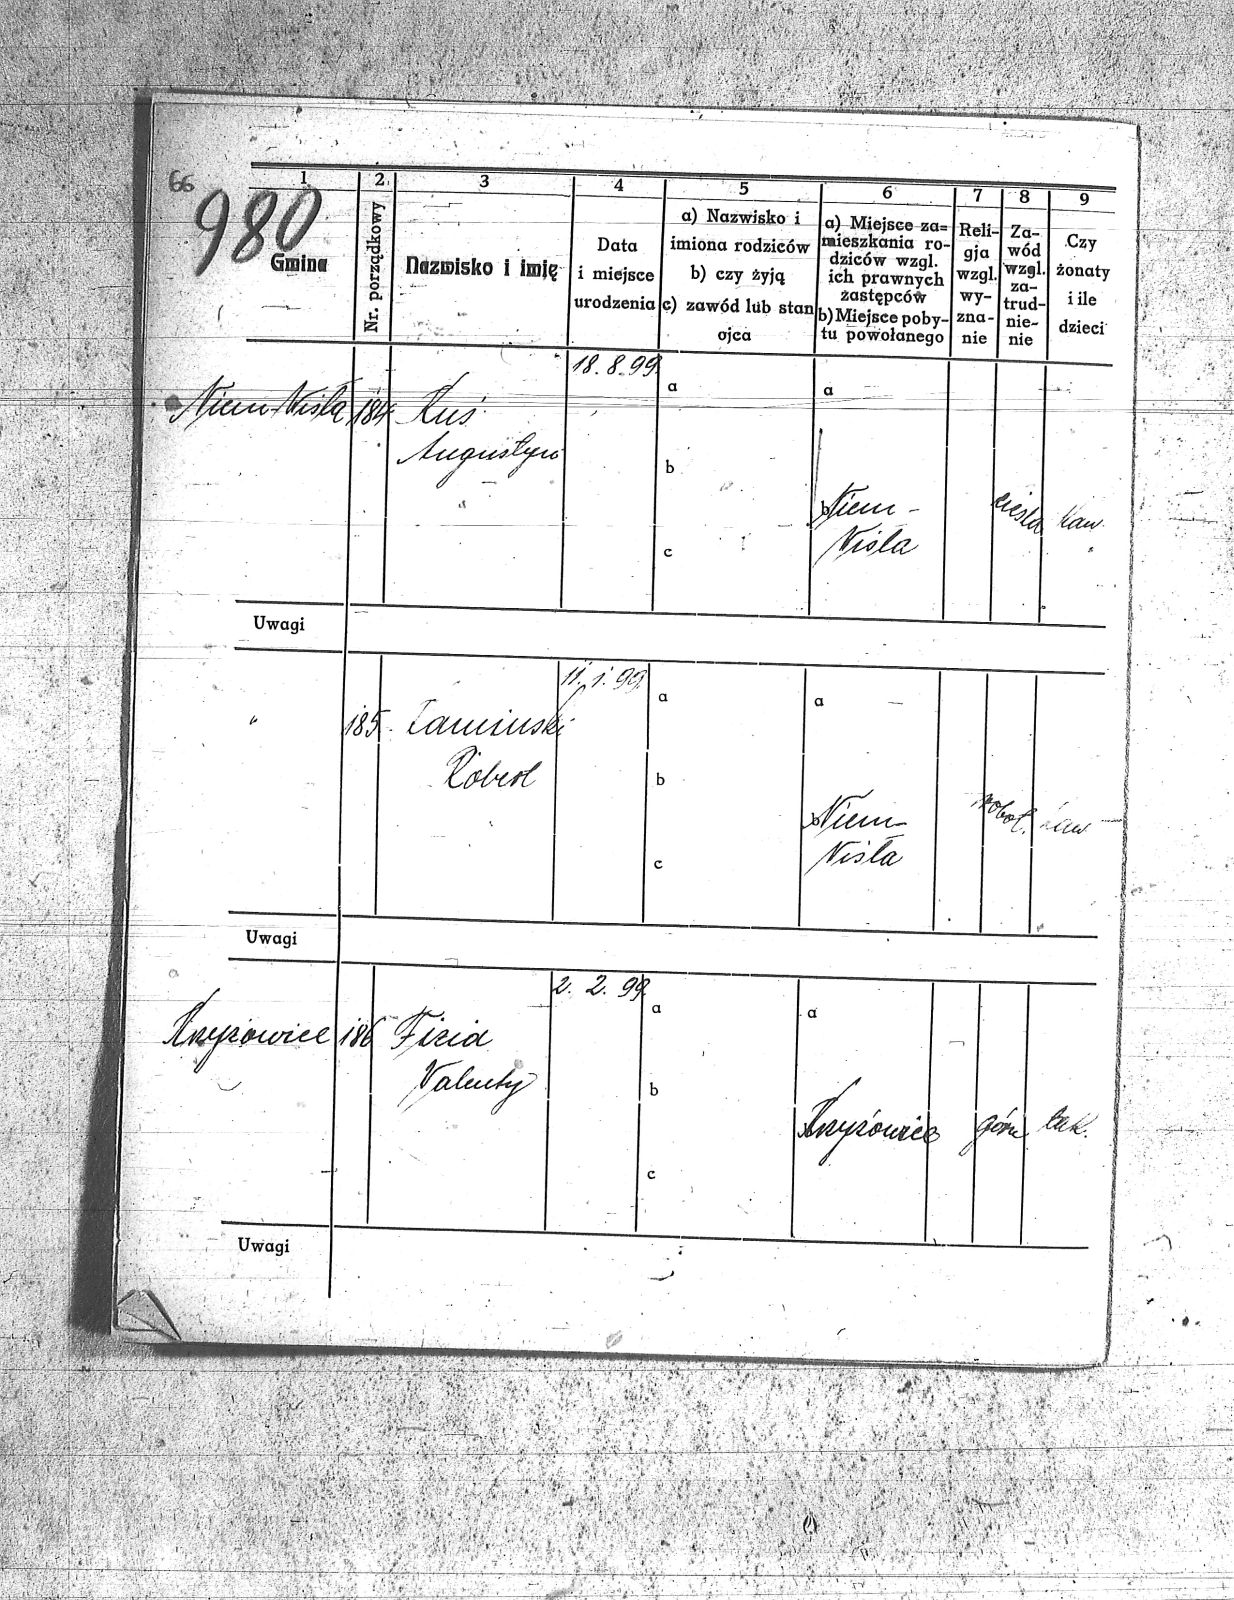 66
980
1 2 3 4 5 6 7 8 9
Gmina
Nr. porządkowy
Nazwisko i imię
Data
i miejsce
urodzenia
a) Nazwisko i
imiona rodziców
b) czy żyją
c) zawód lub stan
ojca
a) Miejsce za=
mieszkania ro-
dziców wzgl.
ich prawnych
zastępców
b) Miejsce poby-
tu powołanego
Reli-
gja
wzgl.
wy-
zna-
nie
Za-
wód
wzgl.
za-
trud-
nie-
nie
Czy
żonaty
i ile
dzieci
18. 8. 99.
Niem-Wisła 184. Kuś
Augustyn
a
b
c
a
b
Niem-
Wisla
cieśla
kaw.
Uwagi
11. 1. 99.
" 185.
Robert
a
b
c
a
b
Niem-
Wisła
robot.
kaw
Uwagi
2. 2. 99.
Krzyżowice 186 Fizia
Valenty
a
b
c
a
Krzyżowice
górn
tak.
Uwagi